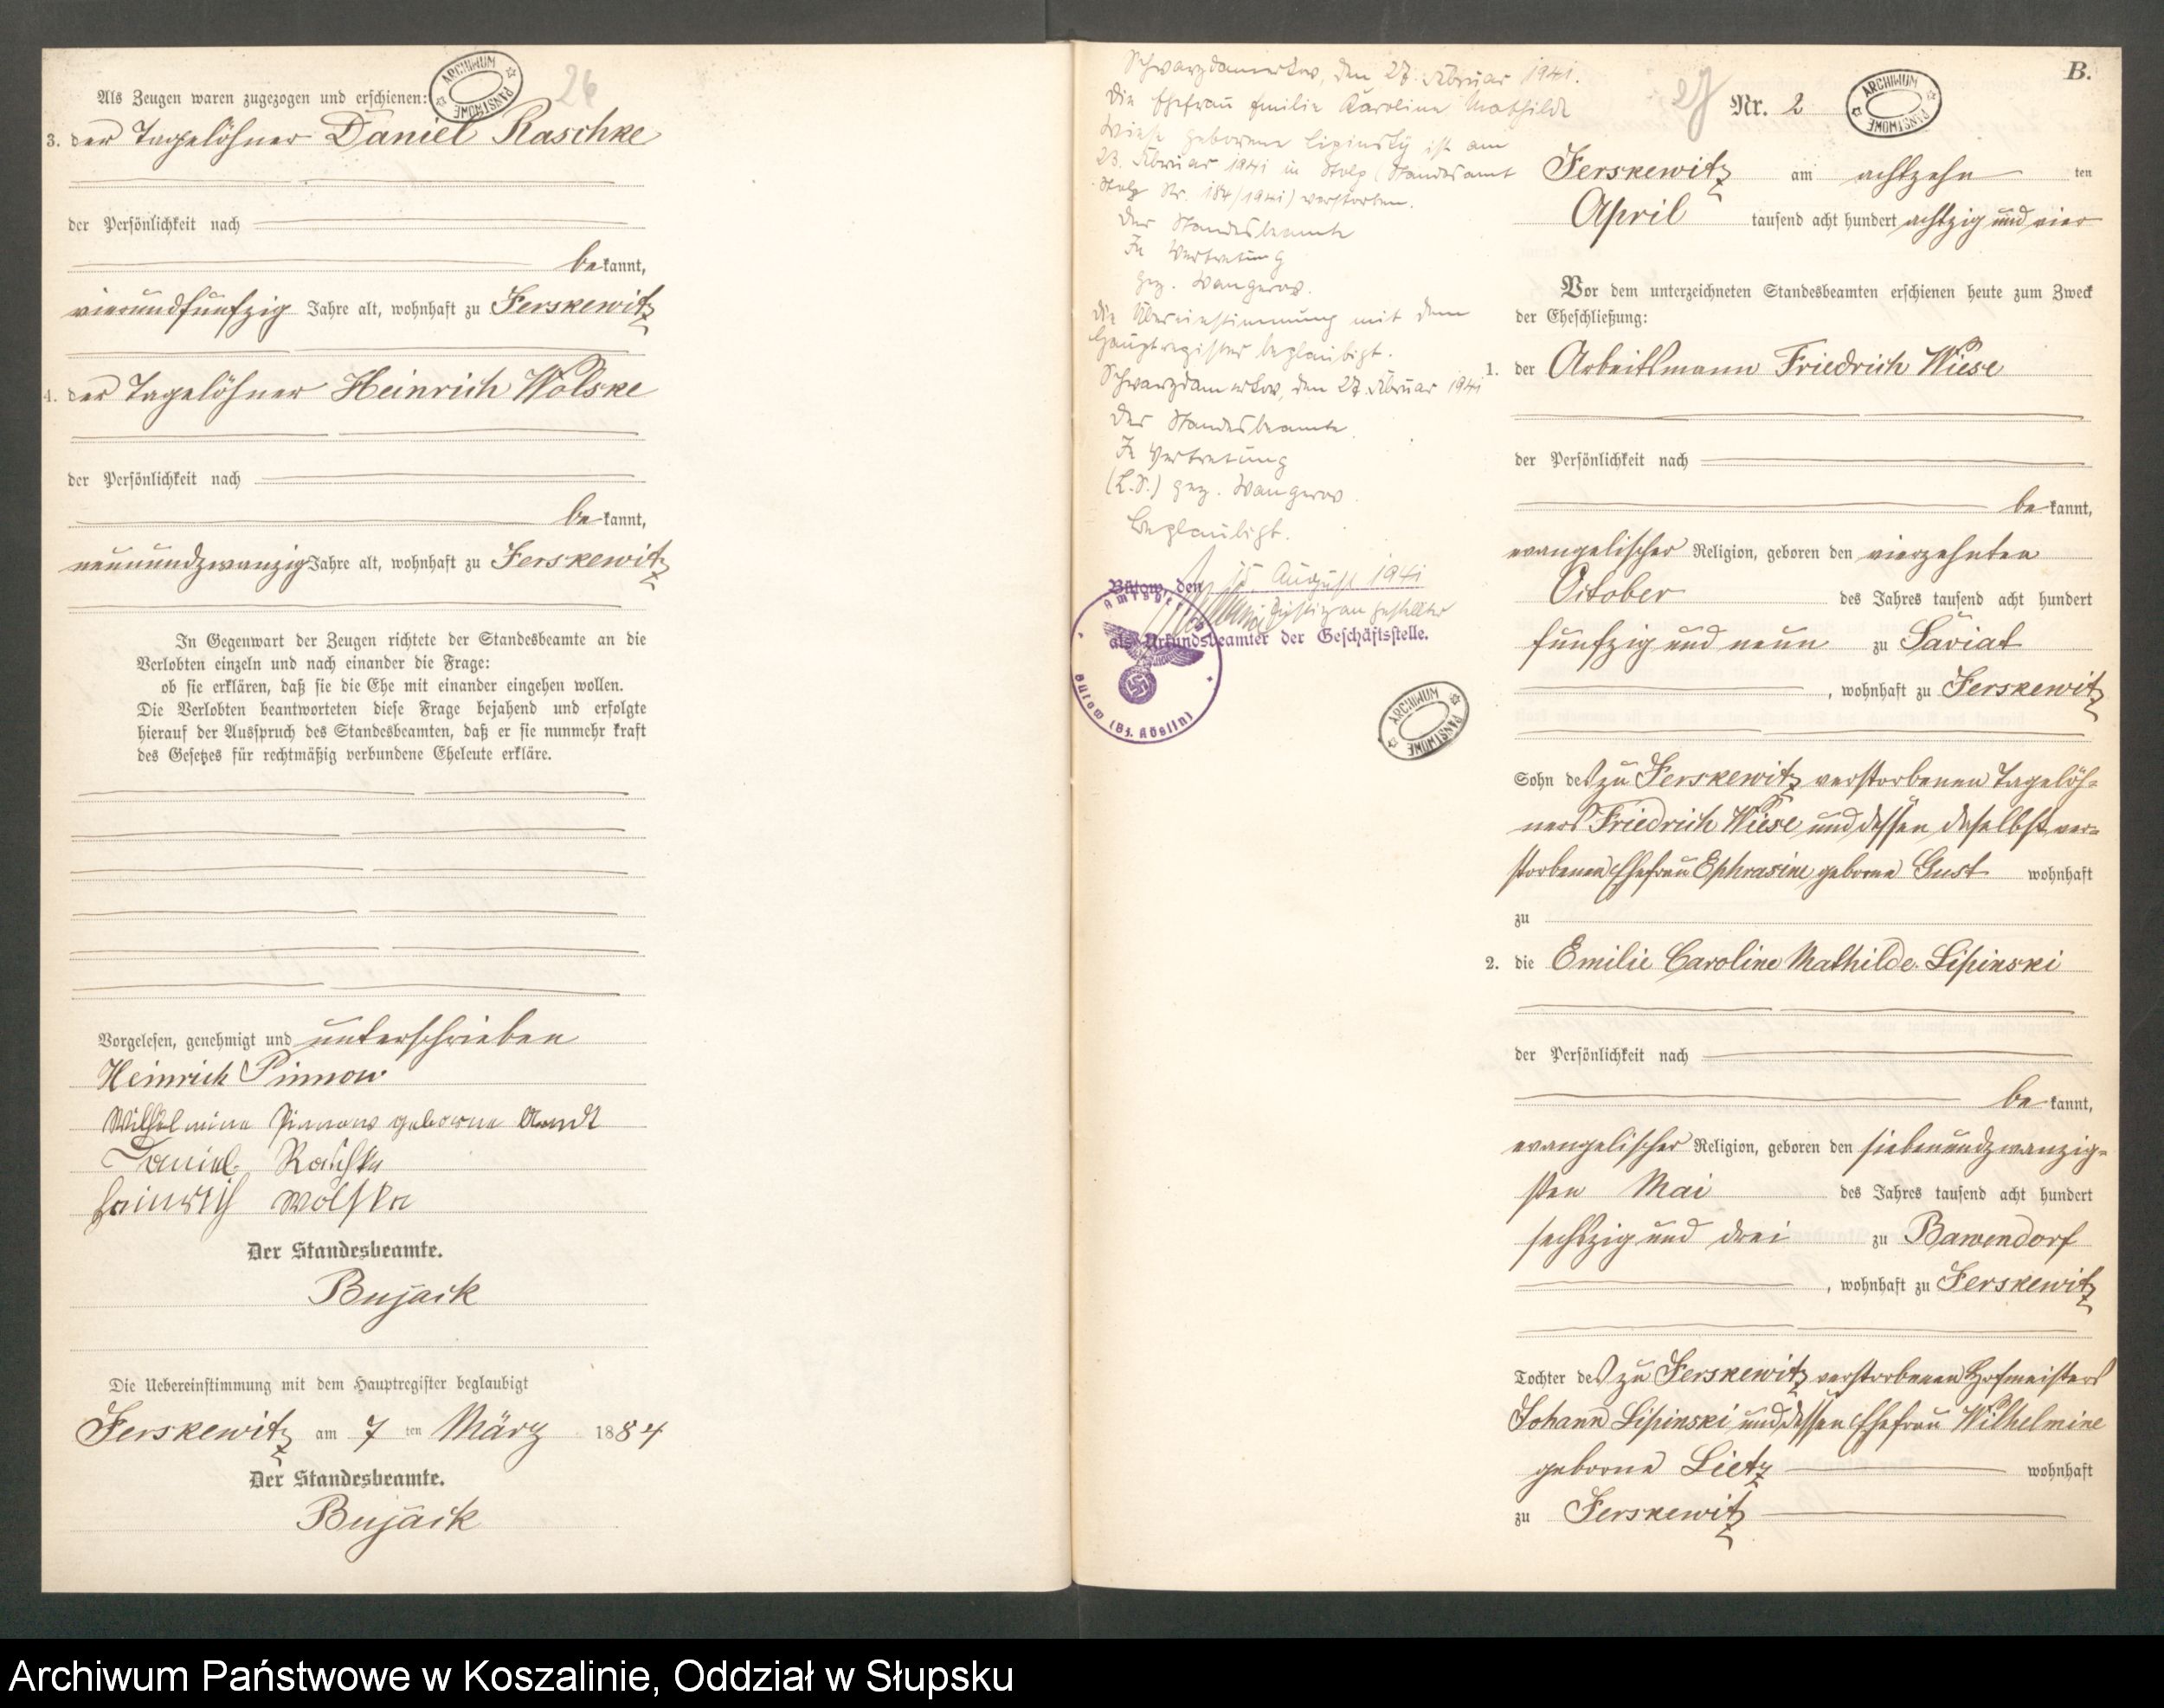 Als Zeugen waren zugezogen und erschienen:
ARCHIWUM PAŃSTWOWE
26
3. der Tagelöhner Daniel Raschke
der Persönlichkeit nach
bekannt,
vierundfünfzig Jahre alt, wohnhaft zu Ferskewitz
4. der Tagelöhner Heinrich Wolske
der Persönlichkeit nach
bekannt,
neunundzwanzig Jahre alt, wohnhaft zu Ferskewitz
In Gegenwart der Zeugen richtete der Standesbeamte an die
Verlobten einzeln und nach einander die Frage:
ob sie erklären, daß sie die Ehe mit einander eingehen wollen.
Die Verlobten beantworteten diese Frage bejahend und erfolgte
hierauf der Ausspruch des Standesbeamten, daß er sie nunmehr kraft
des Gesetzes für rechtmäßig verbundene Eheleute erkläre.
Vorgelesen, genehmigt und unterschrieben
Heinrich Pinnow
Wilhelmine Pinnow geborne Arndt
Daniel Raschke
Heinrich Wolske
Der Standesbeamte.
Bujack
Die Uebereinstimmung mit dem Hauptregister beglaubigt
Ferskewitz am 7 ten März 1884
Der Standesbeamte.
Bujack
Schwarzdamerkow, den 27. Februar 1941.
Die Ehefrau Emilie Karoline Mathilde
Wiese geborene Lipinsky ist am
23. Februar 1941 in Stolp (Standesamt
Stolp Nr. 184/1941) verstorben.
Der Standesbeamte
In Vertretung
gez. Wangerow.
Die Übereinstimmung mit dem
Hauptregister beglaubigt.
Schwarzdamerkow, den 27. Februar 1941
Der Standesbeamte.
In Vertretung
(L.S.) gez. Wangerow.
Beglaubigt.
Bütow, den 15. August 1941
Justizangestellter
als Urkundsbeamter der Geschäftsstelle.
Amtsgericht Bütow (Bz. Köslin)
ARCHIWUM PAŃSTWOWE
B.
27
Nr. 2
ARCHIWUM PAŃSTWOWE
Ferskewitz am achtzehn ten
April tausend acht hundert achtzig und vier
Vor dem unterzeichneten Standesbeamten erschienen heute zum Zweck
der Eheschließung:
1. der Arbeitsmann Friedrich Wiese
der Persönlichkeit nach
bekannt,
evangelischer Religion, geboren den vierzehnten
October des Jahres tausend acht hundert
fünfzig und neun zu Saviat
, wohnhaft zu Ferskewitz
Sohn des zu Ferskewitz verstorbenen Tagelöh-
ners Friedrich Wiese und dessen daselbst ver-
storbenen Ehefrau Ephrasine geborne Gust wohnhaft
zu
2. die Emilie Caroline Mathilde Lipinski
der Persönlichkeit nach
bekannt,
evangelischer Religion, geboren den siebenundzwanzig-
sten Mai des Jahres tausend acht hundert
sechszig und drei zu Bawendorf
, wohnhaft zu Ferskewitz
Tochter des zu Ferskewitz verstorbenen Hofmeisters
Johann Lipinski und dessen Ehefrau Wilhelmine
geborne Lietz wohnhaft
zu Ferskewitz
Archiwum Państwowe w Koszalinie, Oddział w Słupsku